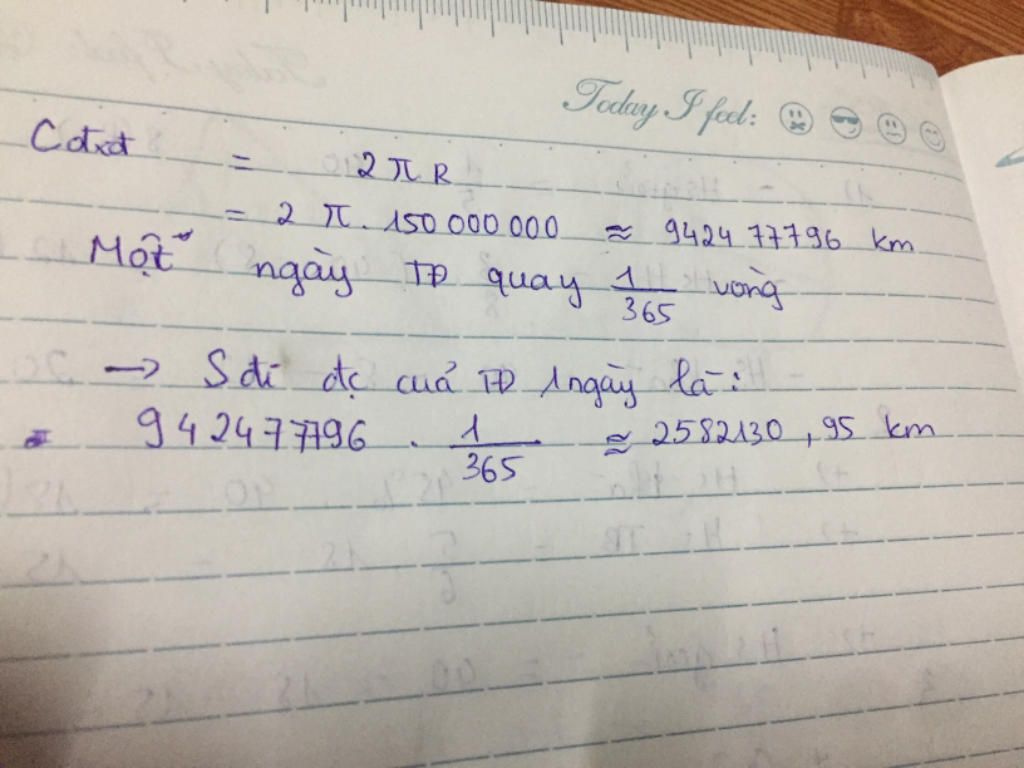 Today I feel:
Cđxđ = 2πR
= 2π. 150 000 000 ≈ 942477796 km
Một ngày TĐ quay 1/365 vòng
→ S đi đc cuả TĐ 1 ngày là:
= 942477796 . 1/365 ≈ 2582130,95 km